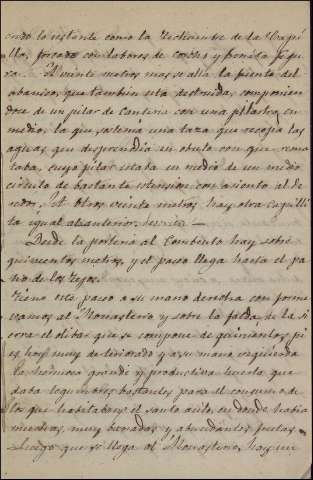 como la techumbre de la Capi
lla, forrada con labores de corcho y bonita figu
ra. A veinte metros mas se alla la fuente del
abanico, que tambien esta destruida, componien
dose de un pilar de Canteria con una pilastra en
medio, la que sostenia una taza que recogia las
aguas, que desprendia un obulo con que rema
taba, cuyo pilar estaba en medio de un medio
circulo de bastante estension con asiento al de
redor. A otros veinte metros hay otra Capillita
igual al anterior descrita
Desde la porteria al Combento hay sobre
quinientos metros, y el paseo llega hasta el pa
tio de los Tejos.
Tiene este paseo a su mano derecha con forme
vamos al Monasterio y sobre la falda de la si
erra el olibar que se compone de quinientos pi
es, hoy muy deteriorado y a su mano izquierda
la hermosa grande y productiva huerta que
daba legumbres bastantes para el consumo de
los que habitaban el santo asilo, en donde habia
muchas, muy buenas y abundantes frutas.
Luego que se llega al Monasterio, hay un